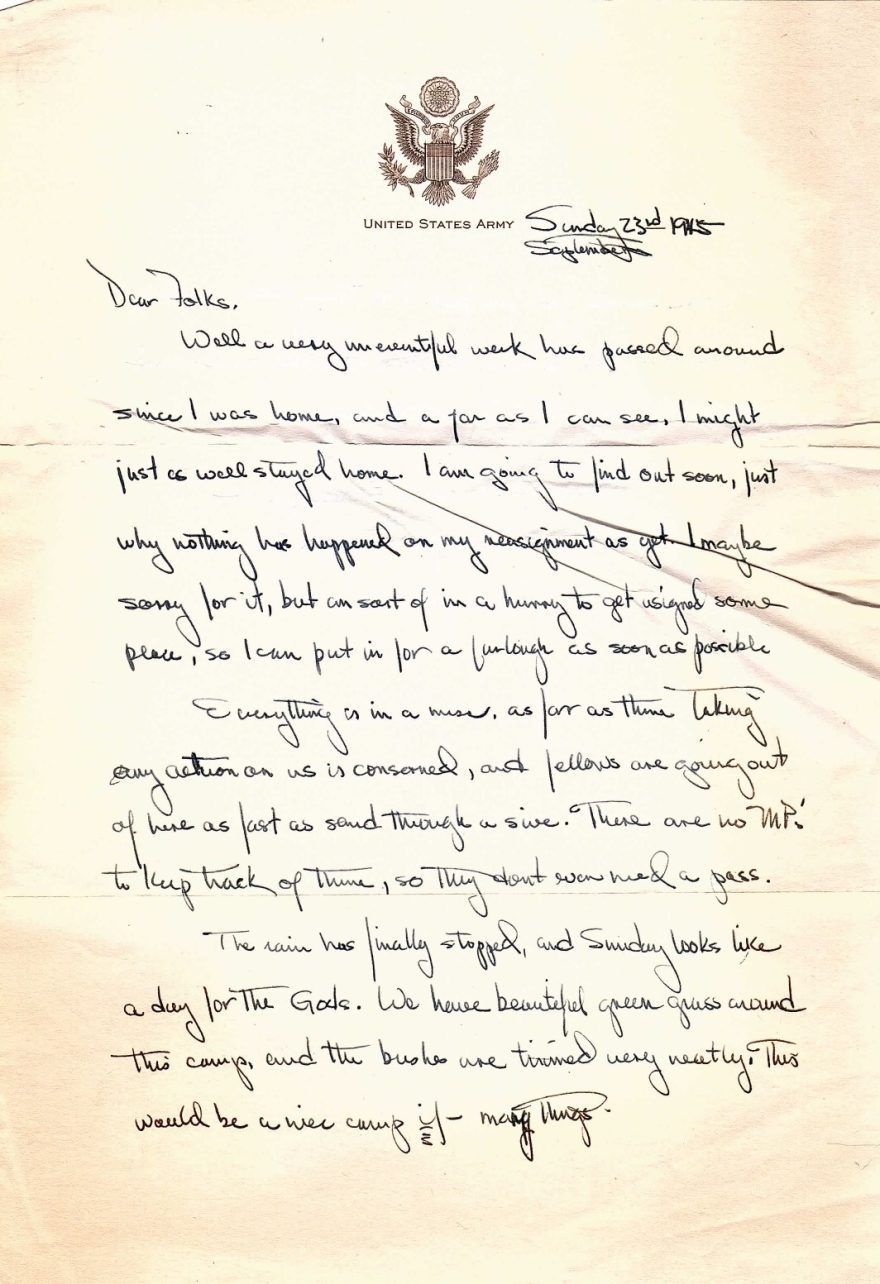 UNITED STATES ARMY
Sunday 23rd 1945
September
Dear Folks.
Well a very uneventful week has passed around
since I was home, and a far as I can see, I might
just as well stayed home. I am going to find out soon, just
why nothing has happened on my reasignment as yet. I maybe
sorry for it, but am sort of in a hurry to get asigned some
place, so I can put in for a furlough as soon as possible
Everything is in a mess, as far as there taking
any action on us is conserned, and fellows are going out
of here as fast as sand through a sive. There are no MP.'
to keep track of them, so they dont even need a pass.
The rain has finally stopped, and Sunday looks like
a day for the Gods. We have beautiful green grass around
this camp, and the bushes are trimed very neatly. This
would be a nice camp if - many things.